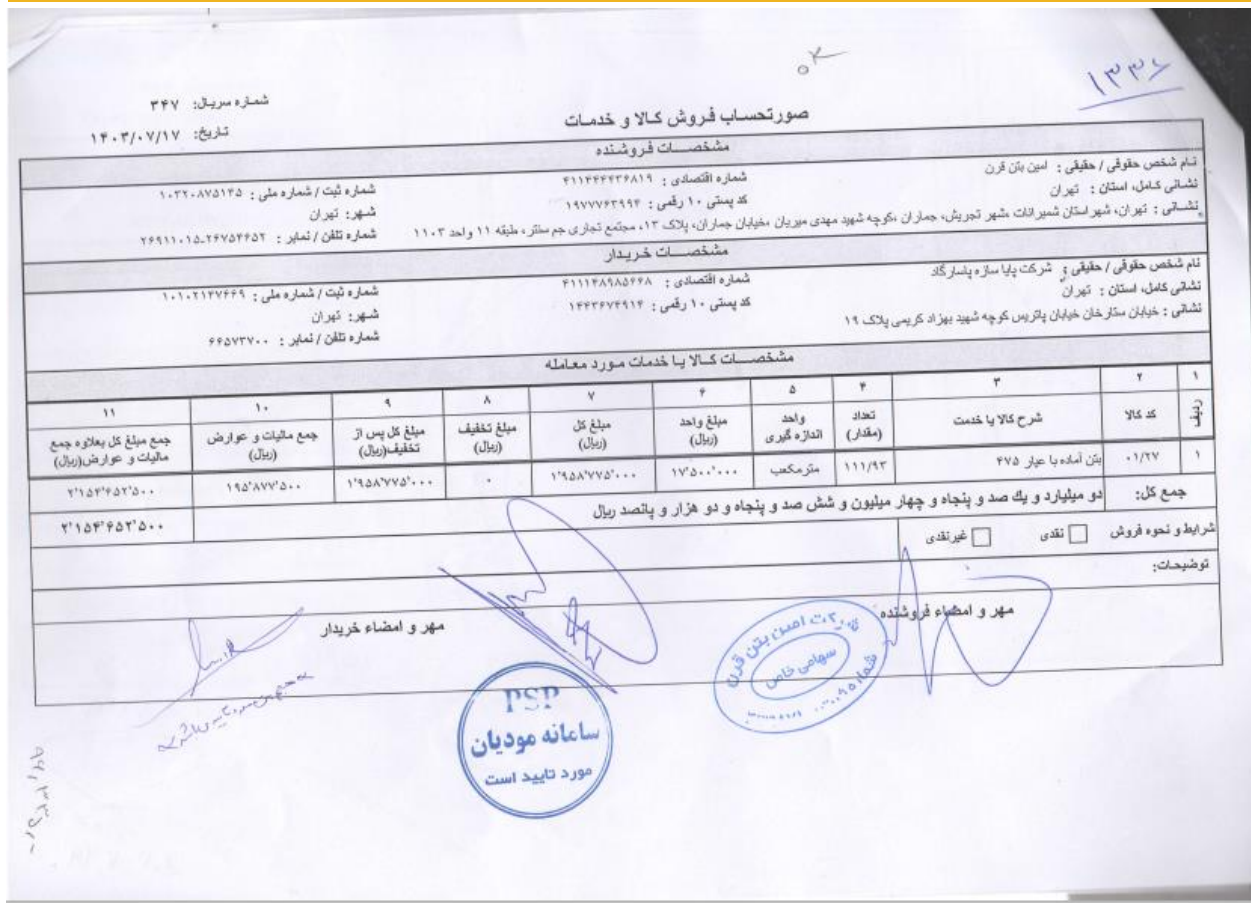 ok
۱۳۳۶
شماره سریال: ۳۴۷
تاریخ: ۱۴۰۳/۰۷/۱۷
صورتحساب فروش کالا و خدمات
مشخصات فروشنده
نام شخص حقوقی / حقیقی : امین بتن قرن شماره اقتصادی : ۴۱۱۴۴۴۴۳۶۸۱۹ شماره ثبت / شماره ملی : ۱۰۳۲۰۸۷۵۱۳۵
نشانی کامل، استان : تهران کد پستی ۱۰ رقمی : ۱۹۷۷۷۶۳۹۹۴ شهر: تهران
نشانی : تهران، شهر استان شمیرانات ،شهر تجریش، جماران ،کوچه شهید مهدی میریان ،خیابان جماران، پلاک ۱۳، مجتمع تجاری جم سنتر، طبقه ۱۱ واحد ۱۱۰۳ شماره تلفن / نمابر : ۲۶۹۱۱۰۱۵-۲۶۷۵۴۶۵۲
مشخصات خریدار
نام شخص حقوقی / حقیقی : شرکت پایا سازه پاسارگاد شماره اقتصادی : ۴۱۱۱۴۸۹۸۵۶۶۸ شماره ثبت / شماره ملی : ۱۰۱۰۲۱۴۷۶۶۹
نشانی کامل، استان : تهران کد پستی ۱۰ رقمی : ۱۴۴۳۶۷۴۹۱۴ شهر: تهران
نشانی : خیابان ستارخان خیابان پاتریس کوچه شهید بهزاد کریمی پلاک ۱۹ شماره تلفن / نمابر : ۶۶۵۷۳۷۰۰
مشخصات کالا یا خدمات مورد معامله
۱ ۲ ۳ ۴ ۵ ۶ ۷ ۸ ۹ ۱۰ ۱۱
ردیف کد کالا شرح کالا یا خدمت تعداد (مقدار) واحد اندازه گیری مبلغ واحد (ریال) مبلغ کل (ریال) مبلغ تخفیف (ریال) مبلغ کل پس از تخفیف(ریال) جمع مالیات و عوارض (ریال) جمع مبلغ کل بعلاوه جمع مالیات و عوارض(ریال)
۱ ۰۱/۲۷ بتن آماده با عیار ۴۷۵ ۱۱۱/۹۳ مترمکعب ۱۷'۵۰۰'۰۰۰ ۱'۹۵۸'۷۷۵'۰۰۰ ۰ ۱'۹۵۸'۷۷۵'۰۰۰ ۱۹۵'۸۷۷'۵۰۰ ۲'۱۵۴'۶۵۲'۵۰۰
جمع کل: دو میلیارد و یك صد و پنجاه و چهار میلیون و شش صد و پنجاه و دو هزار و پانصد ریال ۲'۱۵۴'۶۵۲'۵۰۰
شرایط و نحوه فروش نقدی غیرنقدی
توضیحات:
مهر و امضاء فروشنده مهر و امضاء خریدار
شرکت امین بتن قرن
سهامی خاص
PSP
سامانه مودیان
مورد تایید است